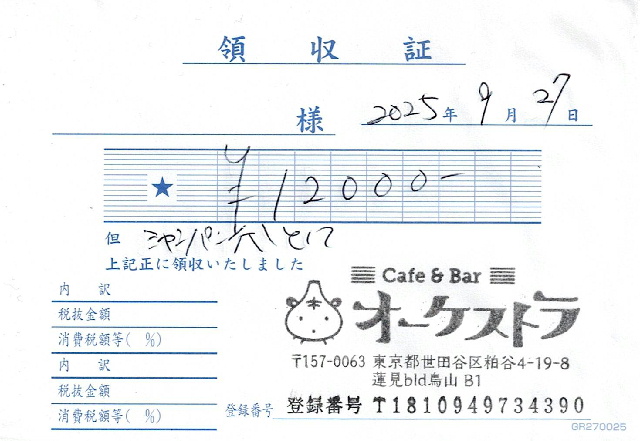 領収証
様 2025年9月27日
★ ¥12000-
但 シャンパン代として
上記正に領収いたしました
内 訳
税抜金額
消費税額等( %)
内 訳
税抜金額
消費税額等( %)
Cafe & Bar
オーケストラ
〒157-0063 東京都世田谷区粕谷4-19-8
蓮見bld烏山 B1
登録番号 登録番号 T1810949734390
GR270025